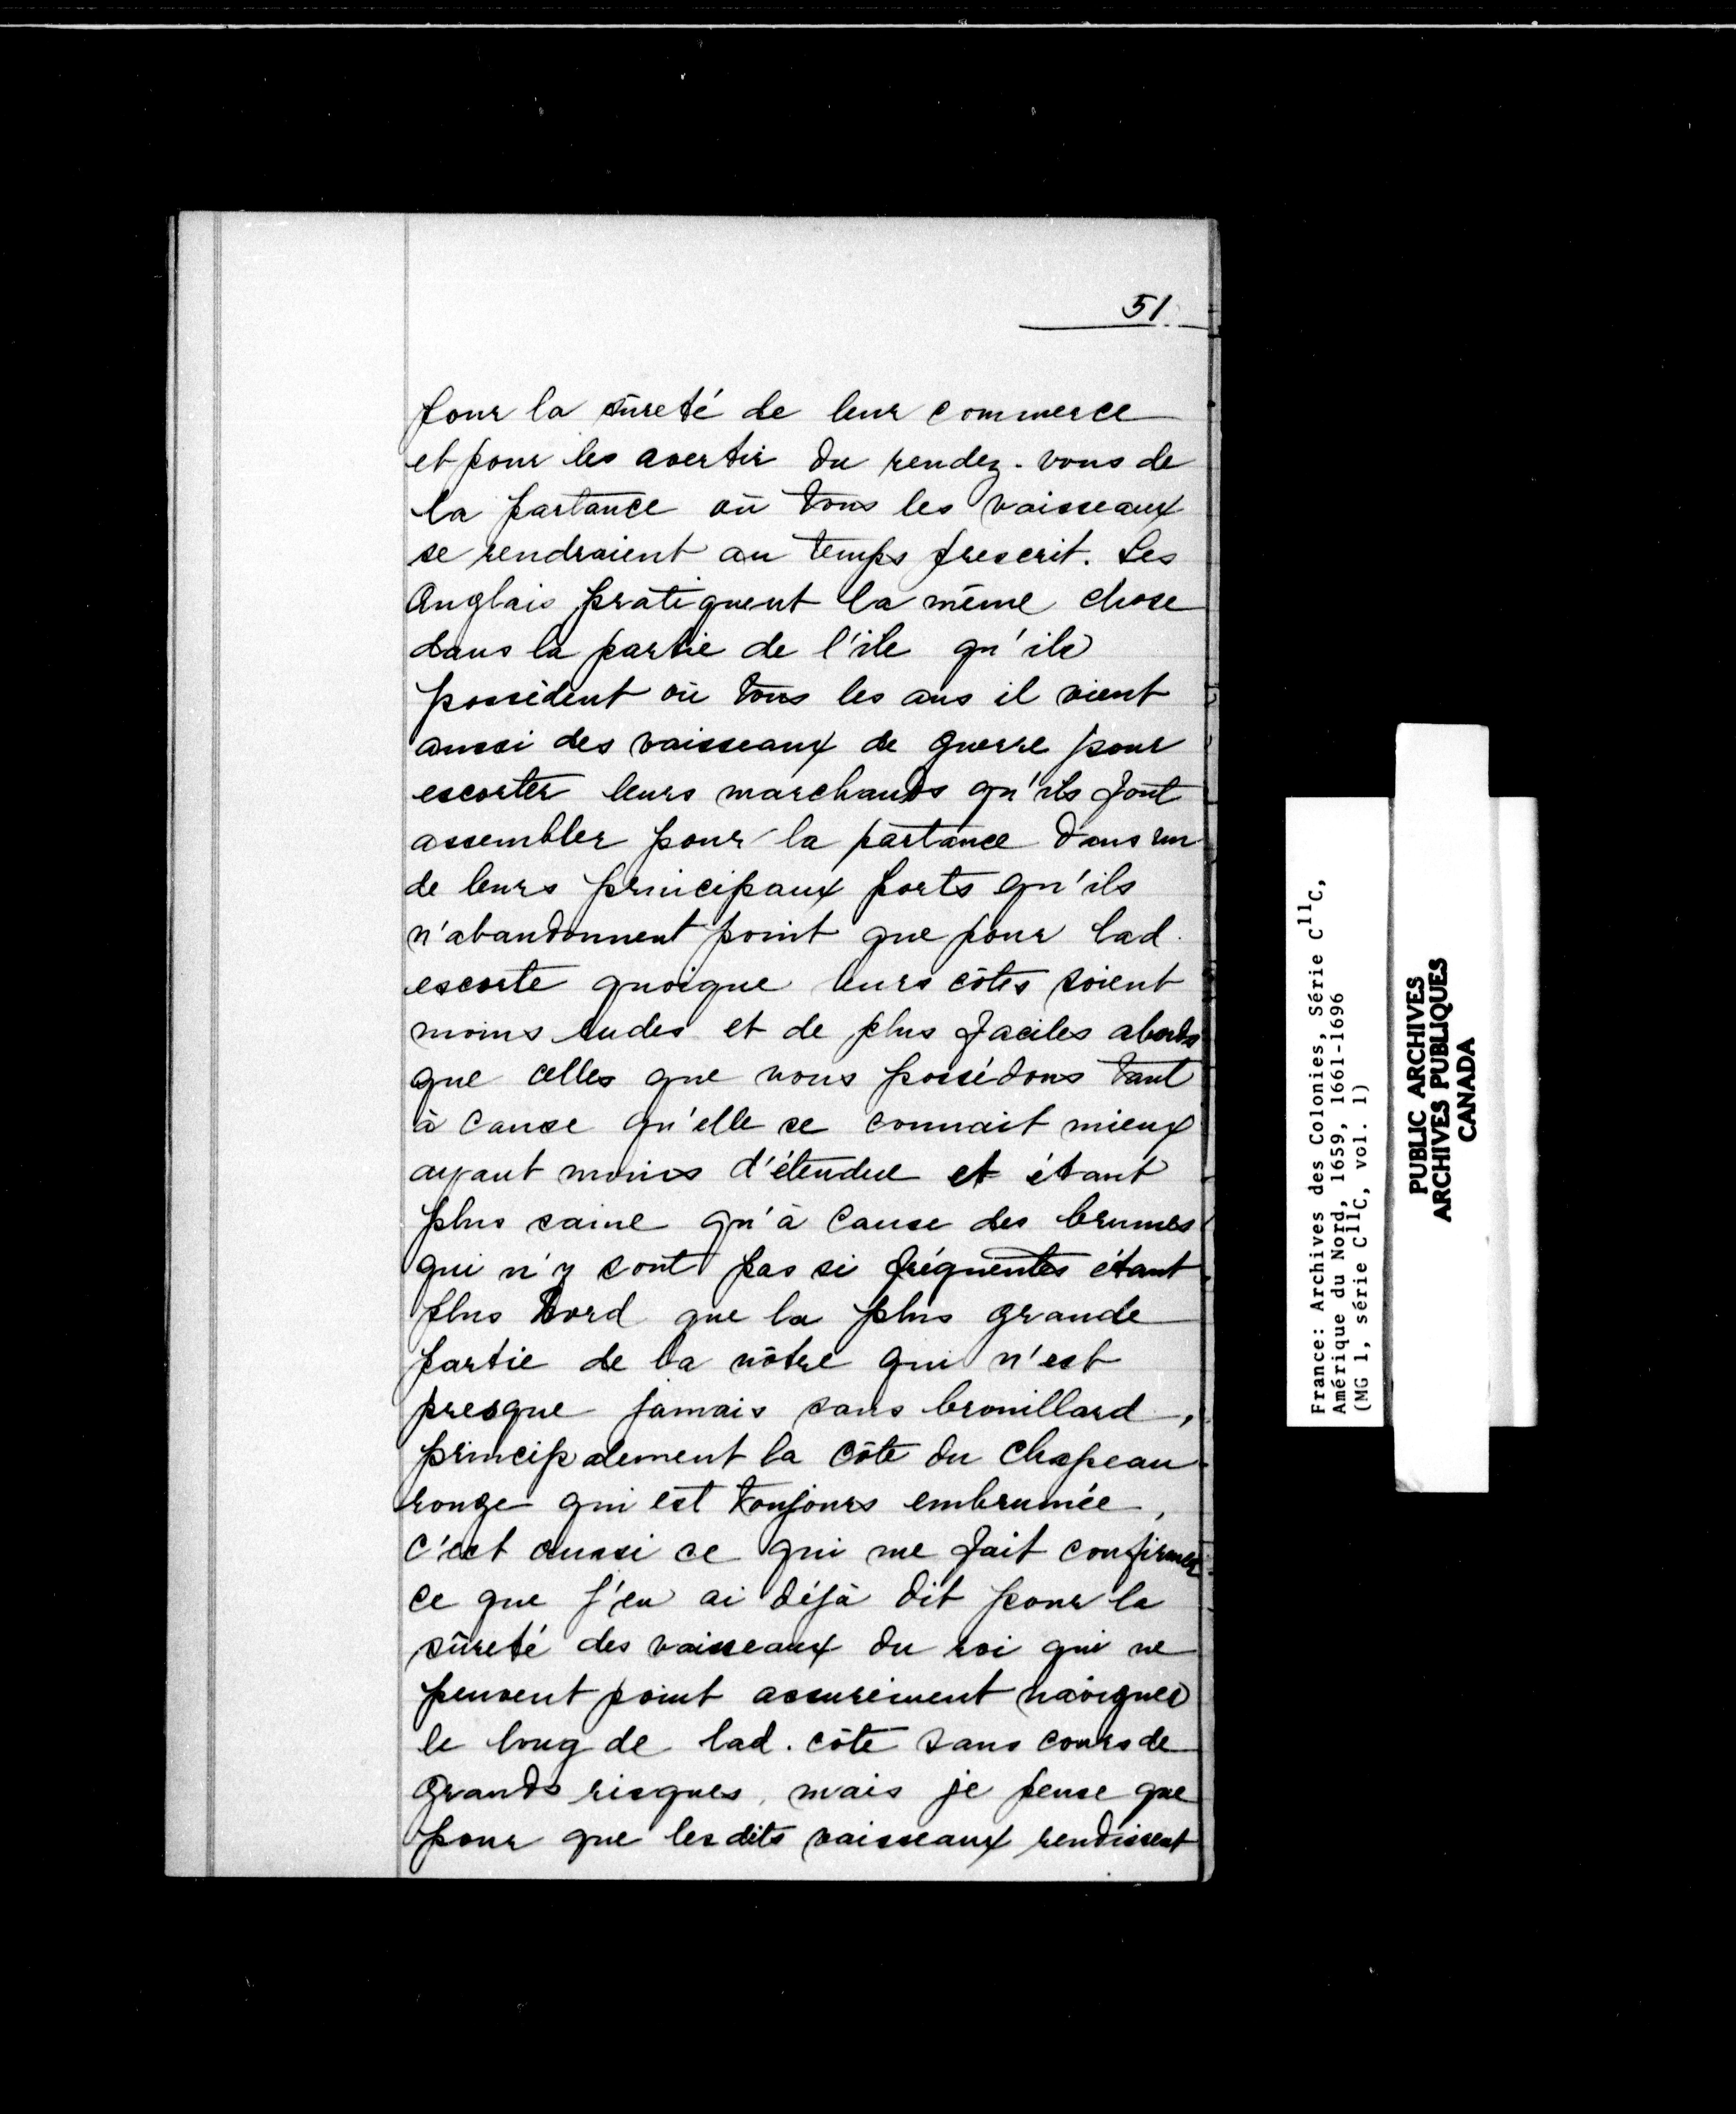 51
pour la sûreté de leur commerce
et pour les avertir du rendez-vous de
la partance où tous les vaisseaux
se rendraient au temps prescrit. Les
Anglais pratiquent la même chose
dans la partie de l'île qu'ils
possèdent où tous les ans il vient
aussi des vaisseaux de guerre pour
escorter leurs marchands qu'ils font
assembler pour la partance dans un
de leurs principaux ports qu'ils
n'abandonnent point que pour lad.
escorte quoique leurs côtes soient
moins rudes et de plus faciles abords
que celles que nous possédons tant
à cause qu'elle se connait mieux
ayant moins d'étendue et étant
plus saine qu'à cause des brumes
qui n'y sont pas si fréquentes étant
plus Nord que la plus grande
partie de la nôtre qui n'est
presque jamais sans brouillard,
principalement la côte du Chapeau
rouge qui est toujours embrumée,
c'est aussi ce qui me fait confirmer
ce que j'en ai déjà dit pour la
sûreté des vaisseaux du roi qui ne
peuvent point assurément naviguer
le long de lad. côte sans cours de
grands risques, mais je pense que
pour que les dits vaisseaux rendissent
France: Archives des Colonies, Série C11C,
Amérique du Nord, 1659, 1661-1696
(MG 1, série C11C, vol. 1)
PUBLIC ARCHIVES
ARCHIVES PUBLIQUES
CANADA